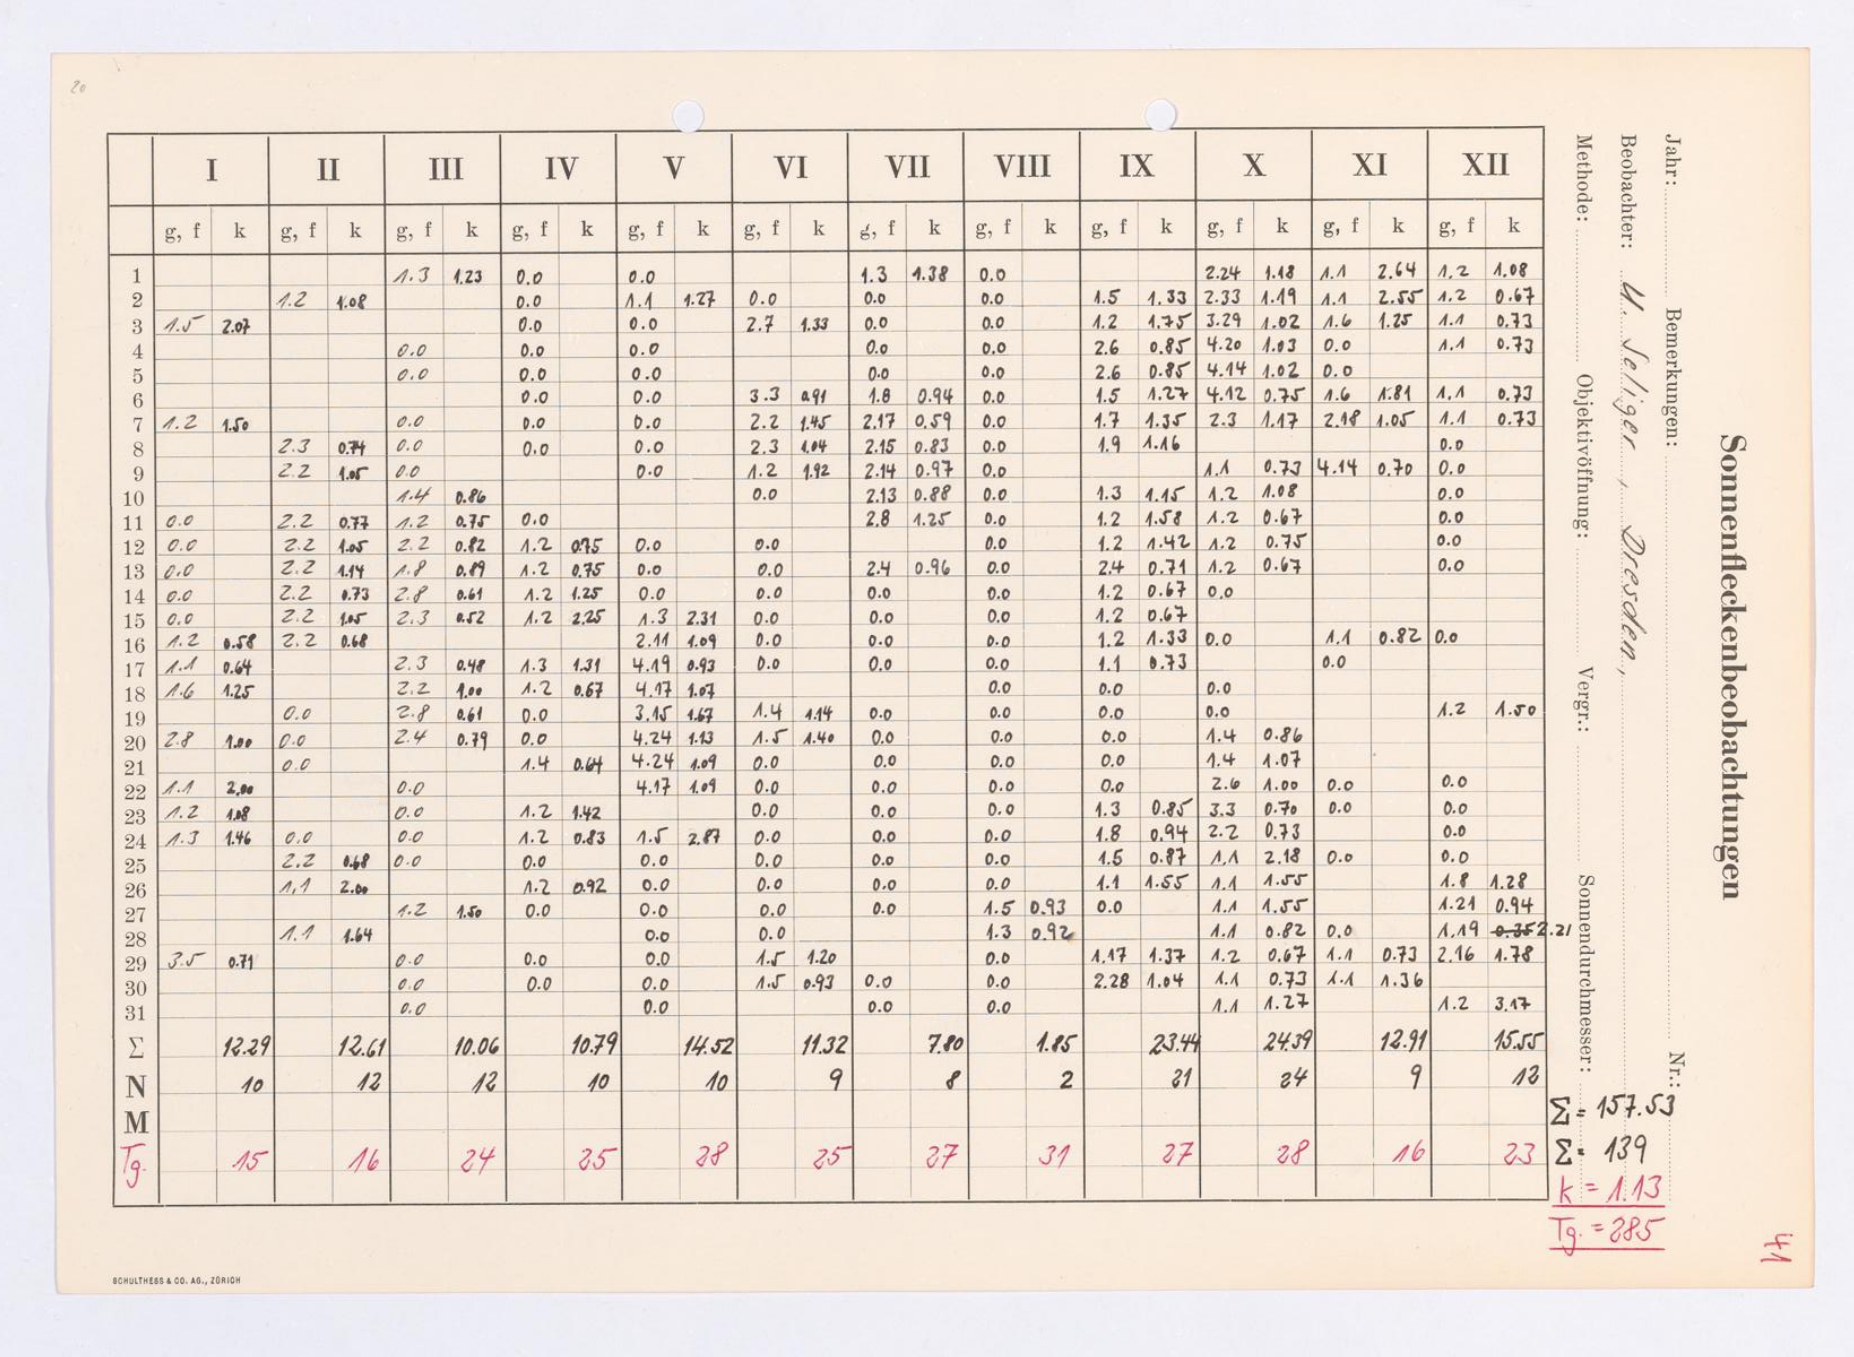 20
I II III IV V VI VII VIII IX X XI XII
g, f k g, f k g, f k g, f k g, f k g, f k g, f k g, f k g, f k g, f k g, f k g, f k
1 1.3 1.23 0.0 0.0 1.3 1.38 0.0 2.24 1.18 1.1 2.64 1.2 1.08
2 1.2 1.08 0.0 1.1 1.27 0.0 0.0 0.0 1.5 1.33 2.33 1.19 1.1 2.55 1.2 0.67
3 1.5 2.07 0.0 0.0 2.7 1.33 0.0 0.0 1.2 1.75 3.29 1.02 1.6 1.25 1.1 0.73
4 0.0 0.0 0.0 0.0 0.0 2.6 0.85 4.20 1.03 0.0 1.1 0.73
5 0.0 0.0 0.0 0.0 0.0 2.6 0.85 4.14 1.02 0.0
6 0.0 0.0 3.3 0.91 1.8 0.94 0.0 1.5 1.27 4.12 0.75 1.6 1.81 1.1 0.73
7 1.2 1.50 0.0 0.0 0.0 2.2 1.45 2.17 0.59 0.0 1.7 1.35 2.3 1.17 2.18 1.05 1.1 0.73
8 2.3 0.74 0.0 0.0 0.0 2.3 1.04 2.15 0.83 0.0 1.9 1.16 0.0
9 2.2 1.05 0.0 0.0 1.2 1.92 2.14 0.97 0.0 1.1 0.73 4.14 0.70 0.0
10 1.4 0.86 0.0 2.13 0.88 0.0 1.3 1.15 1.2 1.08 0.0
11 0.0 2.2 0.77 1.2 0.75 0.0 2.8 1.25 0.0 1.2 1.58 1.2 0.67 0.0
12 0.0 2.2 1.05 2.2 0.82 1.2 0.75 0.0 0.0 0.0 1.2 1.42 1.2 0.75 0.0
13 0.0 2.2 1.14 1.8 0.89 1.2 0.75 0.0 0.0 2.4 0.96 0.0 2.4 0.71 1.2 0.67 0.0
14 0.0 2.2 0.73 2.8 0.61 1.2 1.25 0.0 0.0 0.0 0.0 1.2 0.67 0.0
15 0.0 2.2 1.05 2.3 0.52 1.2 2.25 1.3 2.31 0.0 0.0 0.0 1.2 0.67
16 1.2 0.58 2.2 0.68 2.11 1.09 0.0 0.0 0.0 1.2 1.33 0.0 1.1 0.82 0.0
17 1.1 0.64 2.3 0.48 1.3 1.31 4.19 0.93 0.0 0.0 0.0 1.1 0.73 0.0
18 1.6 1.25 2.2 1.00 1.2 0.67 4.17 1.07 0.0 0.0 0.0
19 0.0 2.8 0.61 0.0 3.15 1.67 1.4 1.14 0.0 0.0 0.0 0.0 1.2 1.50
20 2.8 1.00 0.0 2.4 0.79 0.0 4.24 1.13 1.5 1.40 0.0 0.0 0.0 1.4 0.86
21 0.0 1.4 0.64 4.24 1.09 0.0 0.0 0.0 0.0 1.4 1.07
22 1.1 2.00 0.0 4.17 1.09 0.0 0.0 0.0 0.0 2.6 1.00 0.0 0.0
23 1.2 1.08 0.0 1.2 1.42 0.0 0.0 0.0 1.3 0.85 3.3 0.70 0.0 0.0
24 1.3 1.46 0.0 0.0 1.2 0.83 1.5 2.87 0.0 0.0 0.0 1.8 0.94 2.2 0.73 0.0
25 2.2 0.68 0.0 0.0 0.0 0.0 0.0 0.0 1.5 0.87 1.1 2.18 0.0 0.0
26 1.1 2.00 1.2 0.92 0.0 0.0 0.0 0.0 1.1 1.55 1.1 1.55 1.8 1.28
27 1.2 1.50 0.0 0.0 0.0 0.0 1.5 0.93 0.0 1.1 1.55 1.21 0.94
28 1.1 1.64 0.0 0.0 1.3 0.92 1.1 0.82 0.0 1.19 0.35 2.21
29 3.5 0.71 0.0 0.0 0.0 1.5 1.20 0.0 1.17 1.37 1.2 0.67 1.1 0.73 2.16 1.78
30 0.0 0.0 0.0 1.5 0.93 0.0 0.0 2.28 1.04 1.1 0.73 1.1 1.36
31 0.0 0.0 0.0 0.0 1.1 1.27 1.2 3.17
Σ 12.29 12.61 10.06 10.79 14.52 11.32 7.80 1.85 23.44 24.39 12.91 15.55
N 10 12 12 10 10 9 8 2 21 24 9 12
M
Tg. 15 16 24 25 28 25 27 31 27 28 16 23
Σ = 157.53
Σ = 139
k = 1.13
Tg. = 285
Sonnenfleckenbeobachtungen
Jahr: Bemerkungen: Nr.:
Beobachter: U. Seliger, Dresden,
Methode: Objektivöffnung: Vergr.: Sonnendurchmesser:
41
SCHULTHESS & CO. AG., ZÜRICH